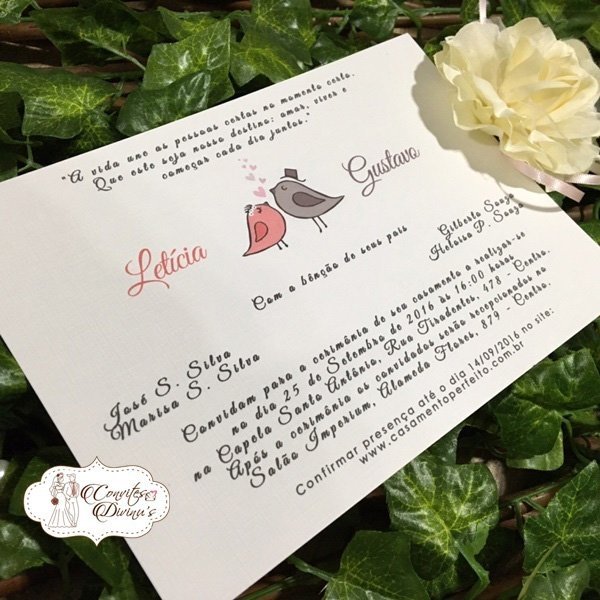 "A vida une as pessoas certas no momento certo.
Que este seja nosso destino: amar, viver e
começar cada dia juntos."
Letícia
Gustavo
Com a bênção de seus pais
José S. Silva
Marisa S. Silva
Gilberto Souza
Heloisa P. Souza
Convidam para a cerimônia de seu casamento a realizar-se
no dia 25 de Setembro de 2016 às 16:00 horas
na Capela Santo Antônio, Rua Tiradentes, 478 - Centro.
Após a cerimônia os convidados serão recepcionados no
Salão Imperium, Alameda Flores, 879 - Centro.
Confirmar presença até o dia 14/09/2016 no site:
www.casamentoperfeito.com.br
Convites
Divinu's